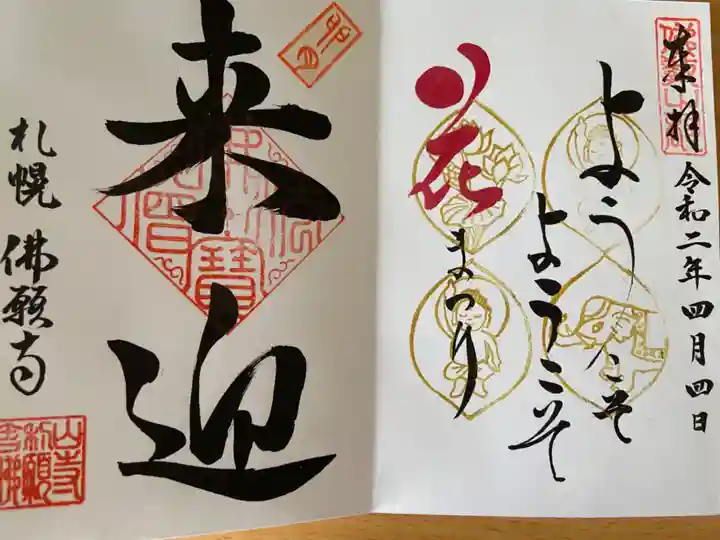 奉拝
令和二年四月四日
ようこそ
ようこそ
花まつり
卯月
来迎
札幌 佛願寺